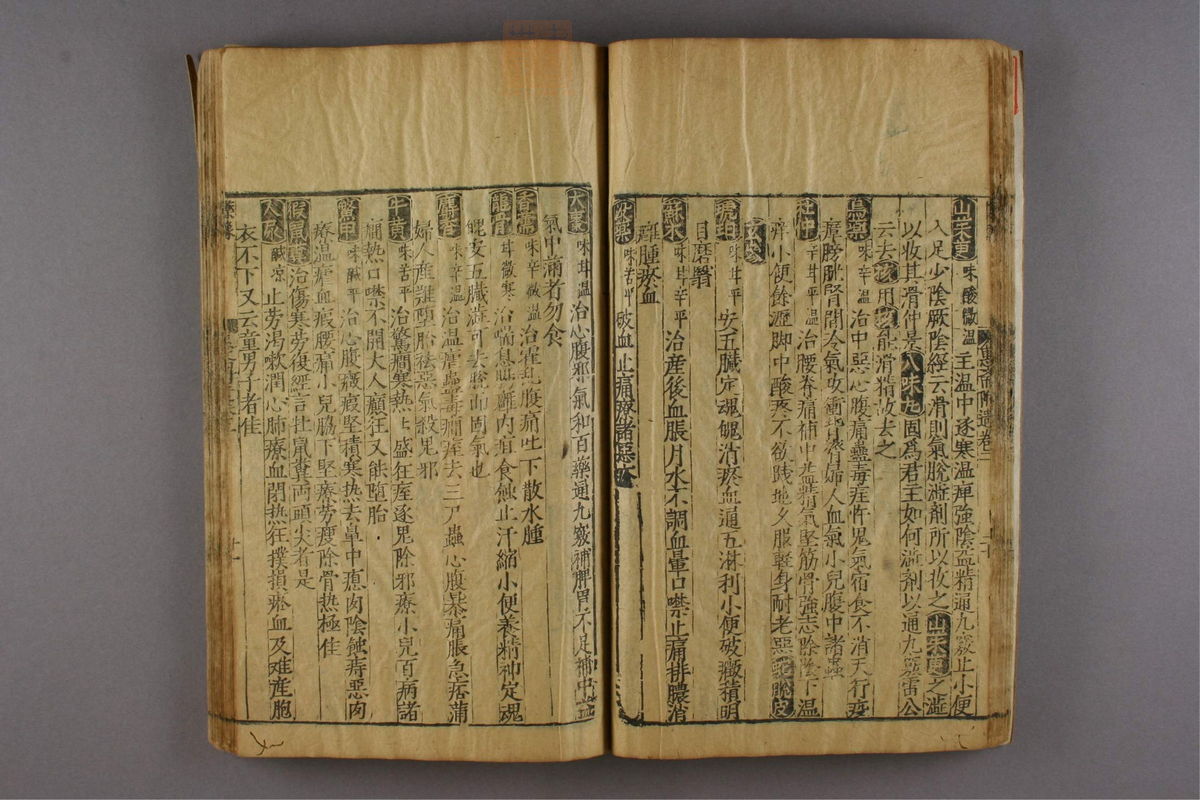 山茱萸 味酸微溫 主温中逐寒温痺強陰益精通九竅止小便
入足少陰厥陰經云滑則氣脫澁劑所以收之山茱萸之澁
以收其滑仲景八味丸固爲君主如何澁劑以通九竅雷公
云去核用核能滑精故去之
烏藥 味辛溫 治中惡心腹痛蠱毒疰忤鬼氣宿食不消天行疫
瘴膀胱腎間冷氣攻衝背膂婦人血氣小兒腹中諸蟲
杜仲 辛甘平溫 治腰脊痛補中益精氣堅筋骨強志除陰下温
痒小便餘瀝脚中酸疼不欲踐地久服輕身耐老惡蛇脫皮
玄參
琥珀 味甘平 安五臟定魂魄消瘀血通五淋利小便破癥積明
目磨翳
蘇木 味甘辛平 治産後血脹月水不調血暈口噤止痛排膿消
癰腫瘀血
味苦平 破血止痛療諸惡瘡
大棗 味甘溫 治心腹邪氣和百藥通九竅補脾胃不足補中益
氣中滿者勿食
香薷 味辛微溫 治霍乱腹痛吐下散水腫
龍骨 甘微寒 治喘息 内疽食蝕止汗縮小便養精神定魂
魄安五臟 去脫而固氣也
麝香 味辛溫 治温瘧蠱毒癇痓去三尸蟲心腹暴痛脹急痞滿
婦人産難墮胎祛惡氣殺鬼邪
牛黃 味苦平 治驚癇寒熱 盛狂痓逐鬼除邪療小兒百病諸
癇熱口噤不開大人癲狂又能墮胎
鱉甲 味鹹平 治心腹癥瘕堅積寒热去鼻中瘜肉陰蝕痔惡肉
療溫瘧血瘕腰痛小兒脇下堅療劳瘦除骨热極佳
治傷寒劳復經言牡鼠糞兩頭尖者是
人尿 鹹凉 止劳渴嗽潤心肺療血閉热狂撲損瘀血及难産胞
衣不下又云童男子者佳